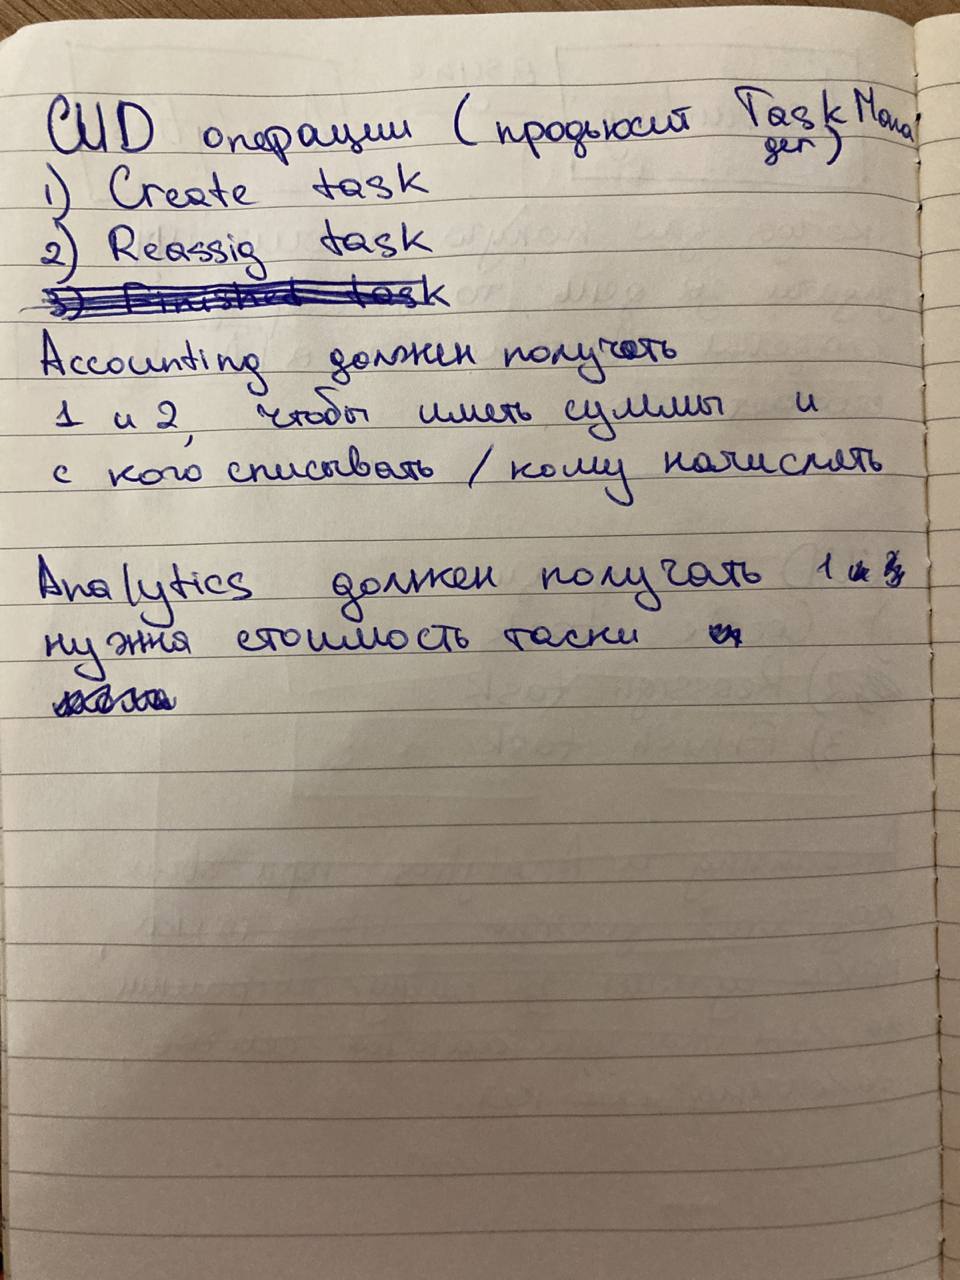 CUD операции (продьюсит Task Mana
ger)
1) Create task
2) Reassig task
3) Finished task
Accounting должен получать
1 и 2, чтобы иметь суммы и
с кого списывать / кому начислять
Analytics должен получать 1
нужна стоимость таски